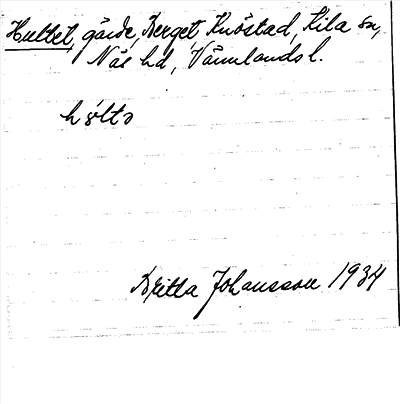 Hultet, gärde, Berget, Knöstad, Kila sn,
Näs hd, Värmlands l.
høltə
Britta Johansson 1934